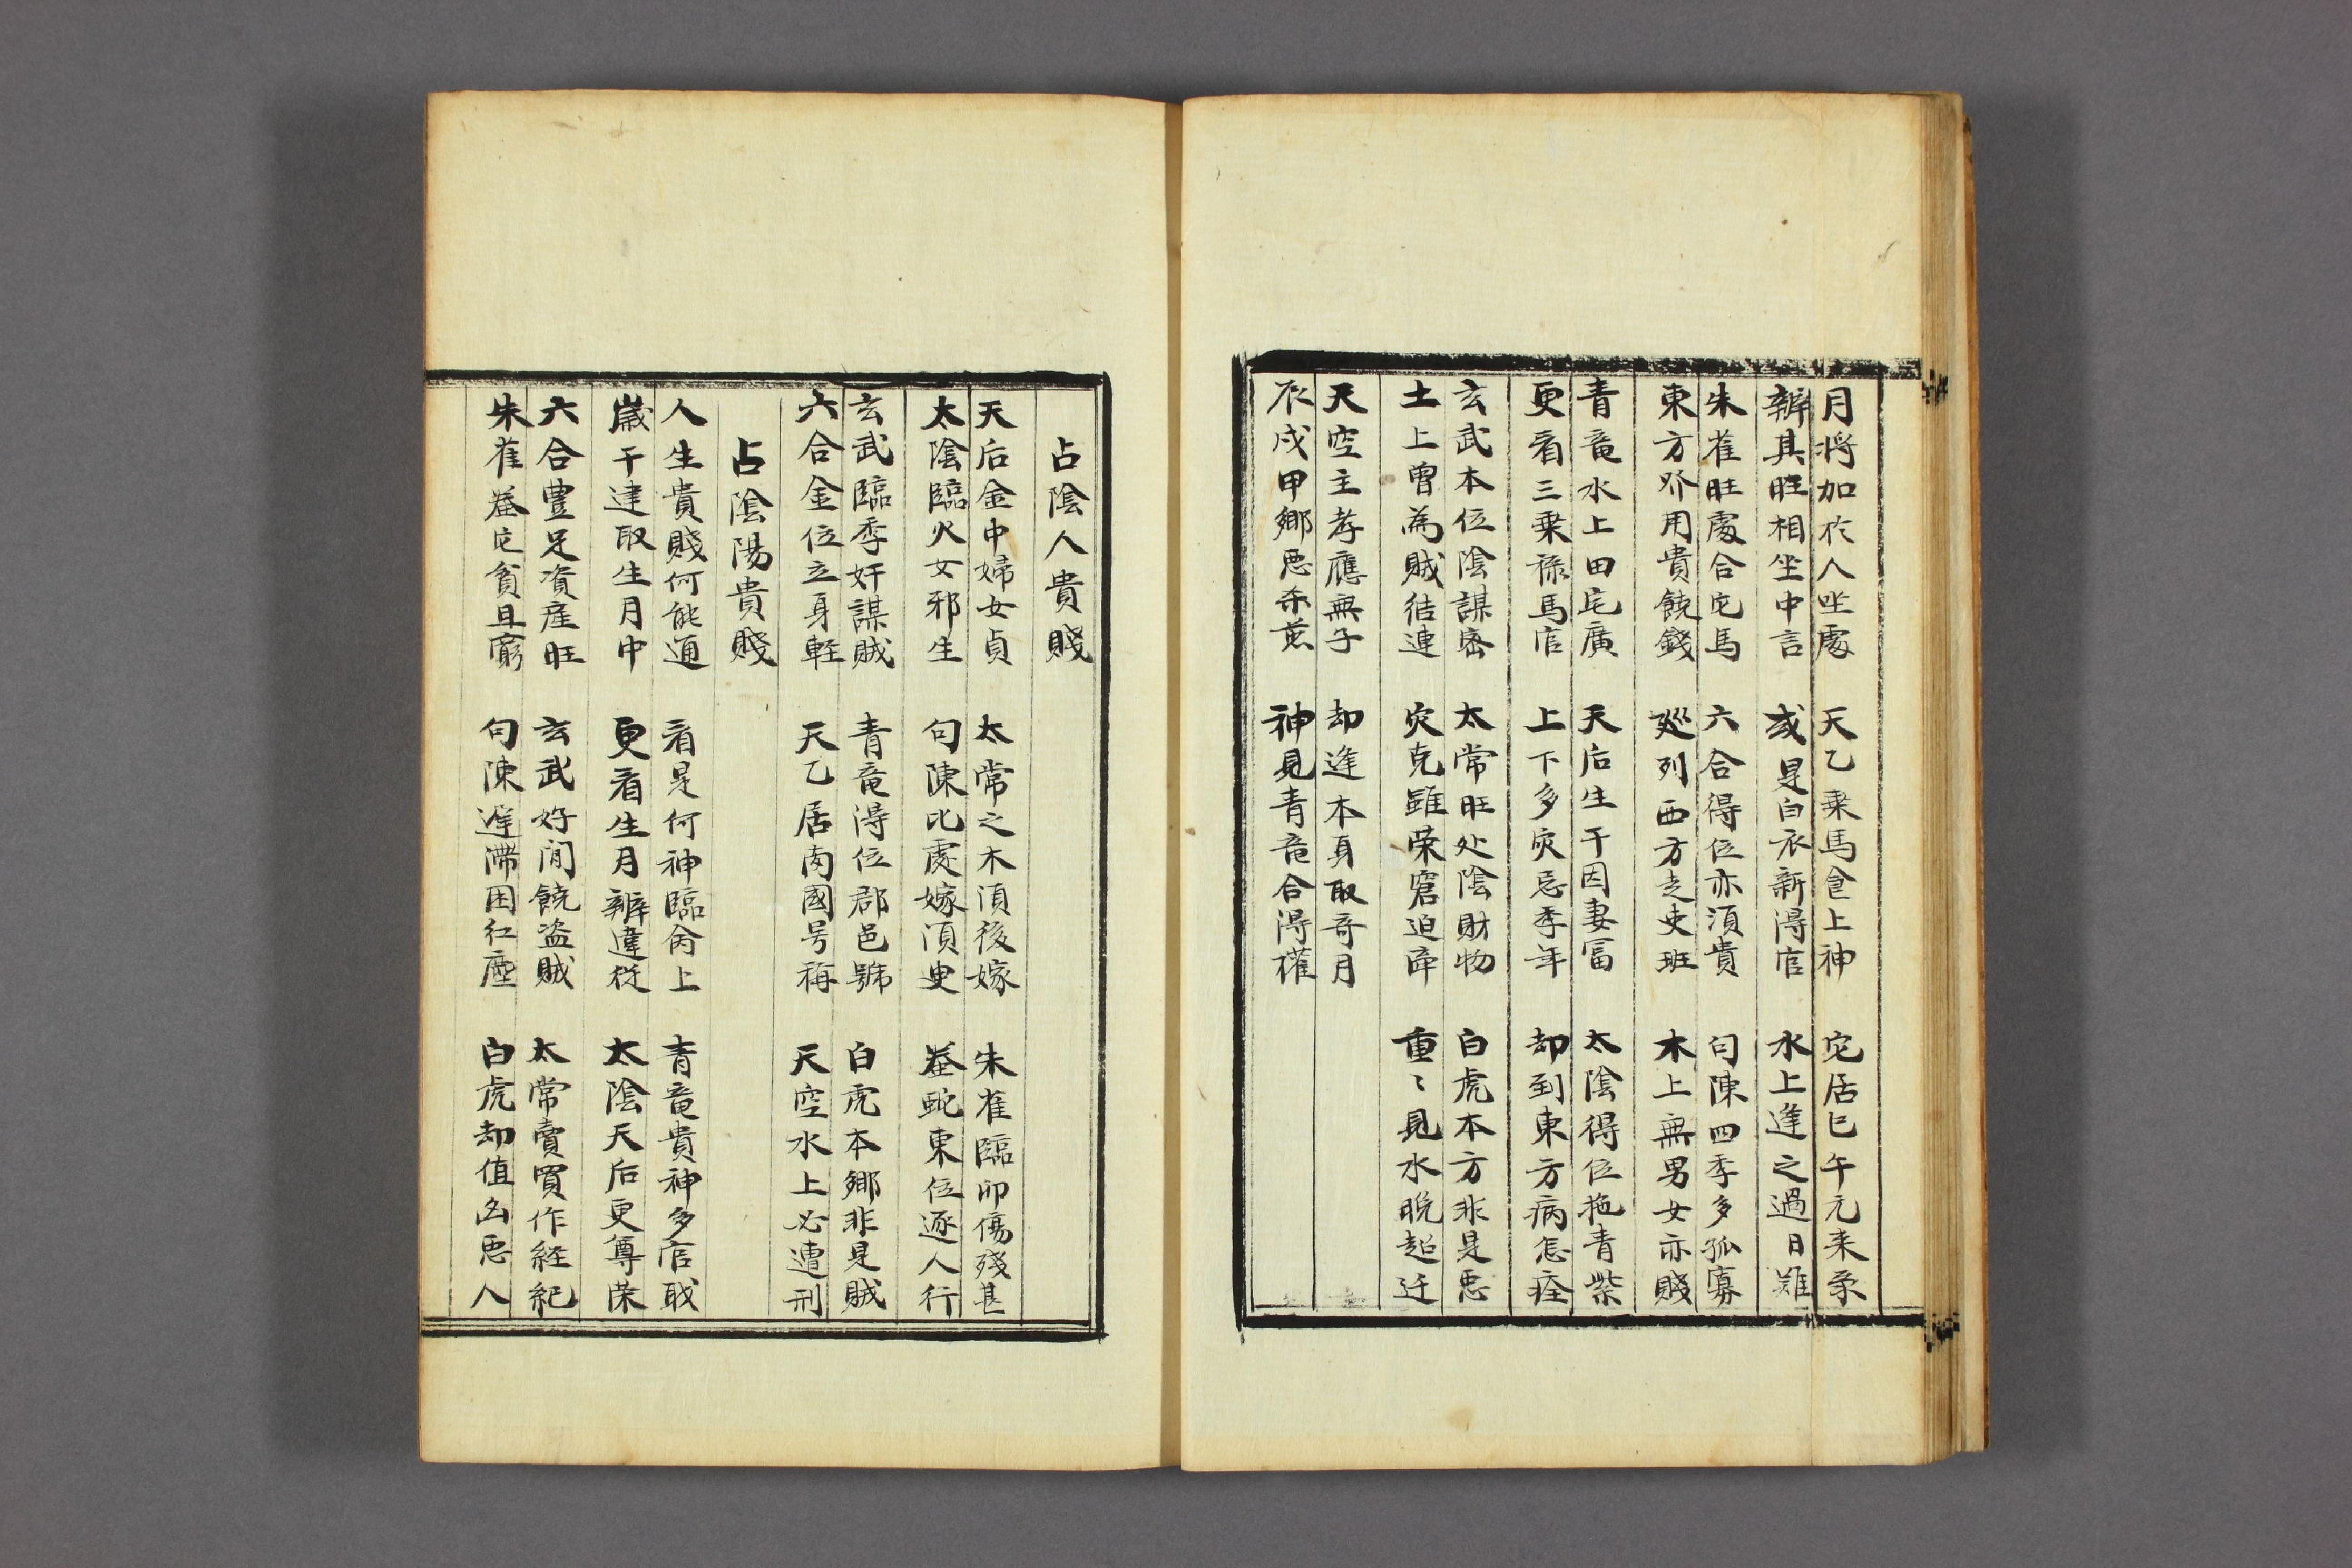 月将加於人坐處　天乙乗馬食上神　宅居巳午元来承
辨其旺相坐中言　或是白衣新得官　水上逢之過日難
朱雀旺處合宅馬　六合得位亦湏貴　勾陳四季多孤寡
東方外用貴饒錢　廵列西方走吏班　木上無男女亦賤
青竜水上田宅廣　天后生干因妻冨　太陰得位拖青紫
更看三乗祿馬官　上下多灾忌季年　却到東方病怎痊
玄武本位陰謀密　太常旺处陰財物　白虎本方非是惡
土上曽為賊徒連　灾克雖荣窘迫　重〻見水脱超迁
天空主孝應無子　却逢本身取奇月
辰戌甲鄉惡　神見青竜合得權
占陰人貴賤
天后金中婦女貞　太常之木湏後嫁　朱雀臨卯傷殘甚
太陰臨火女邪生　勾陳比處嫁湏吏　蛇東位逐人行
玄武臨季奸謀賊　青竜得位郡邑號　白虎本鄉非是賊
六合金位立身輊　天乙居南國号稱　天空水上必遭刑
占陰陽貴賤
人生貴賤何能通　看是何神臨命上　青竜貴神多官職
歳干建取生月中　更看生月辨違從　太陰天后更尊荣
六合豊足資産旺　玄武好閒饒盗賊　太常賣買作経紀
朱雀宅貧且窮　勾陳遅滯困红塵　白虎却值凶惡人